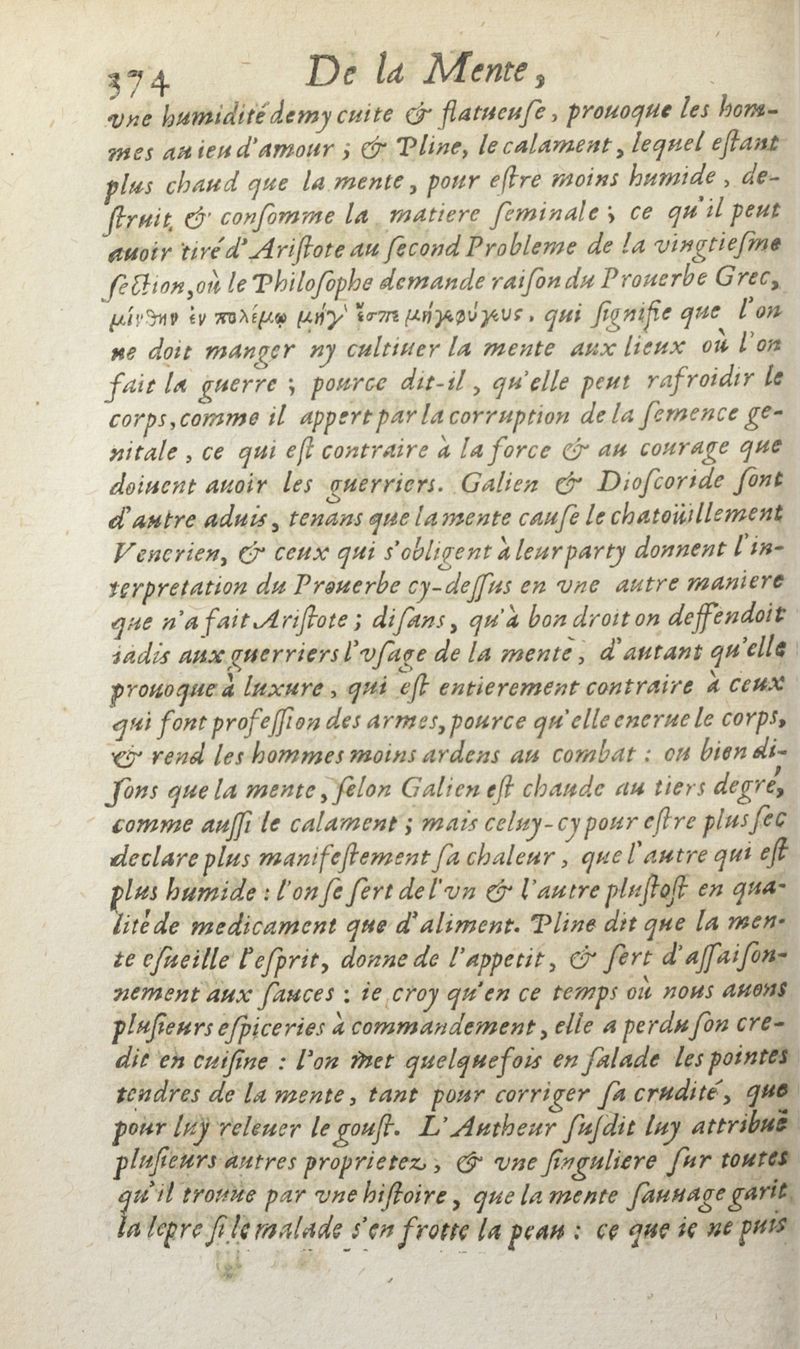 374 De la Mente,
vne humidité demy cuite & flatueuſe, prouoque les hom-
mes au ieu d'amour ; & Pline, le calament, lequel eſtant
plus chaud que la mente, pour eſtre moins humide, de-
ſtruit & conſomme la matiere ſeminale ; ce qu'il peut
auoir tiré d'Ariſtote au ſecond Probleme de la vingtieſme
ſection, où le Philoſophe demande raiſon du Prouerbe Grec,
μίνθην ἐν πολέμῳ μήγ' ἔσπε μήγε φύγευς, qui ſignifie que l'on
ne doit manger ny cultiuer la mente aux lieux où l'on
fait la guerre ; pource dit-il, qu'elle peut rafroidir le
corps, comme il appert par la corruption de la ſemence ge-
nitale, ce qui eſt contraire à la force & au courage que
doiuent auoir les guerriers. Galien & Dioſcoride ſont
d'autre aduis, tenans que la mente cauſe le chatoüillement
Venerien, & ceux qui s'obligent à leur party donnent l'in-
terpretation du Prouerbe cy-deſſus en vne autre maniere
que n'a fait Ariſtote ; diſans, qu'à bon droit on deffendoit
iadis aux guerriers l'vſage de la mente, d'autant qu'elle
prouoque à luxure, qui eſt entierement contraire à ceux
qui font profeſſion des armes, pource qu'elle enerue le corps,
& rend les hommes moins ardens au combat : ou bien di-
ſons que la mente, ſelon Galien eſt chaude au tiers degré,
comme auſſi le calament ; mais celuy-cy pour eſtre plus ſec
declare plus manifeſtement ſa chaleur, que l'autre qui eſt
plus humide : l'on ſe ſert de l'vn & l'autre pluſtoſt en qua-
lité de medicament que d'aliment. Pline dit que la men-
te eſueille l'eſprit, donne de l'appetit, & ſert d'aſſaiſon-
nement aux ſauces : ie croy qu'en ce temps où nous auons
pluſieurs eſpiceries à commandement, elle a perdu ſon cre-
dit en cuiſine : l'on met quelquefois en ſalade les pointes
tendres de la mente, tant pour corriger ſa crudité, que
pour luy releuer le gouſt. L'Autheur ſuſdit luy attribuë
pluſieurs autres proprietez, & vne ſinguliere ſur toutes
qu'il trouue par vne hiſtoire, que la mente ſauuage garit
la lepre ſi le malade s'en frotte la peau : ce que ie ne puis